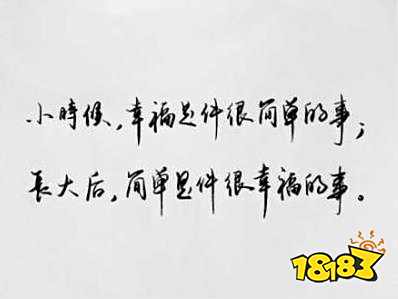 小時候，幸福是件很简单的事；
長大后，简单是件很幸福的事。
18183